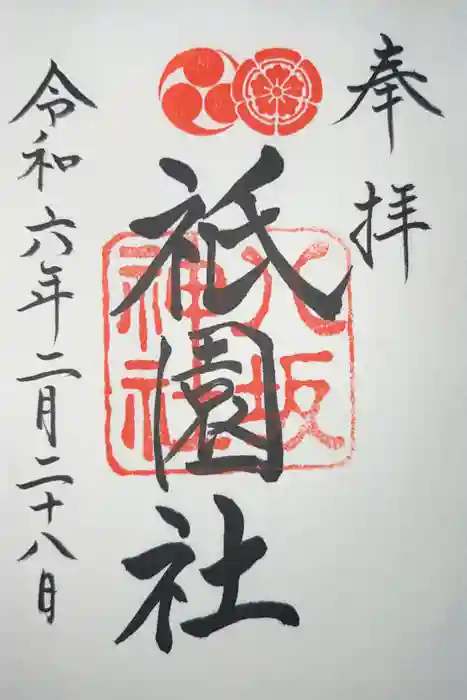 奉拝
八坂
神社
祇園社
令和六年二月二十八日